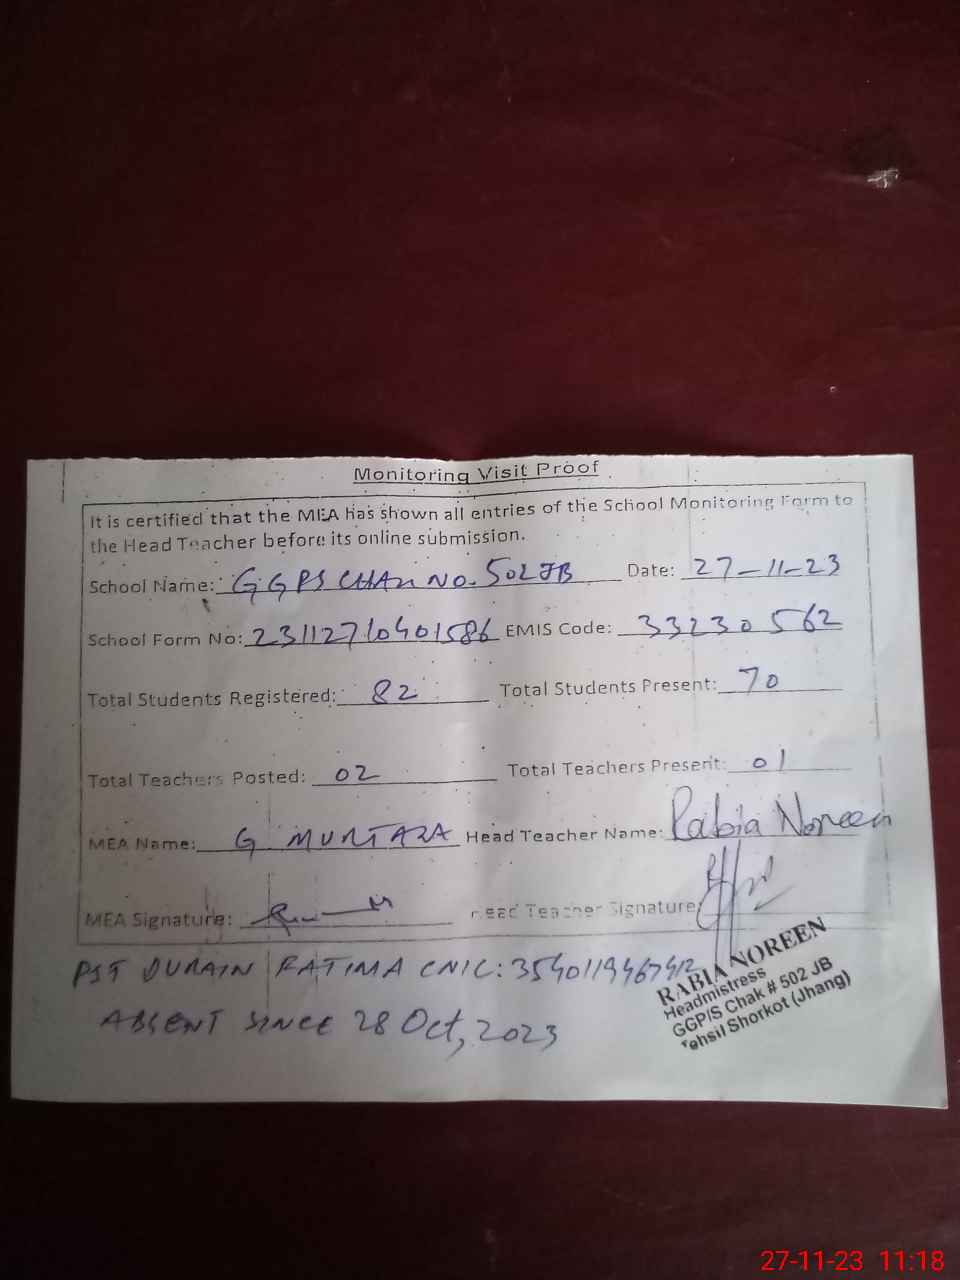 Monitoring Visit Proof
It is certified that the MEA has shown all entries of the School Monitoring Form to
the Head Teacher before its online submission.
School Name: GGPS CHAK NO. 502 JB Date: 27-11-23
School Form No: 23112710401586 EMIS Code: 33230562
Total Students Registered: 82 Total Students Present: 70
Total Teachers Posted: 02 Total Teachers Present: 01
MEA Name: G MURTAZA Head Teacher Name: Rabia Noreen
MEA Signature: Head Teacher Signature
PST DURAIN FATIMA CNIC: 3540119467412
ABSENT SINCE 28 Oct, 2023
RABIA NOREEN
Headmistress
GGP/S Chak # 502 JB
Tehsil Shorkot (Jhang)
27-11-23 11:18